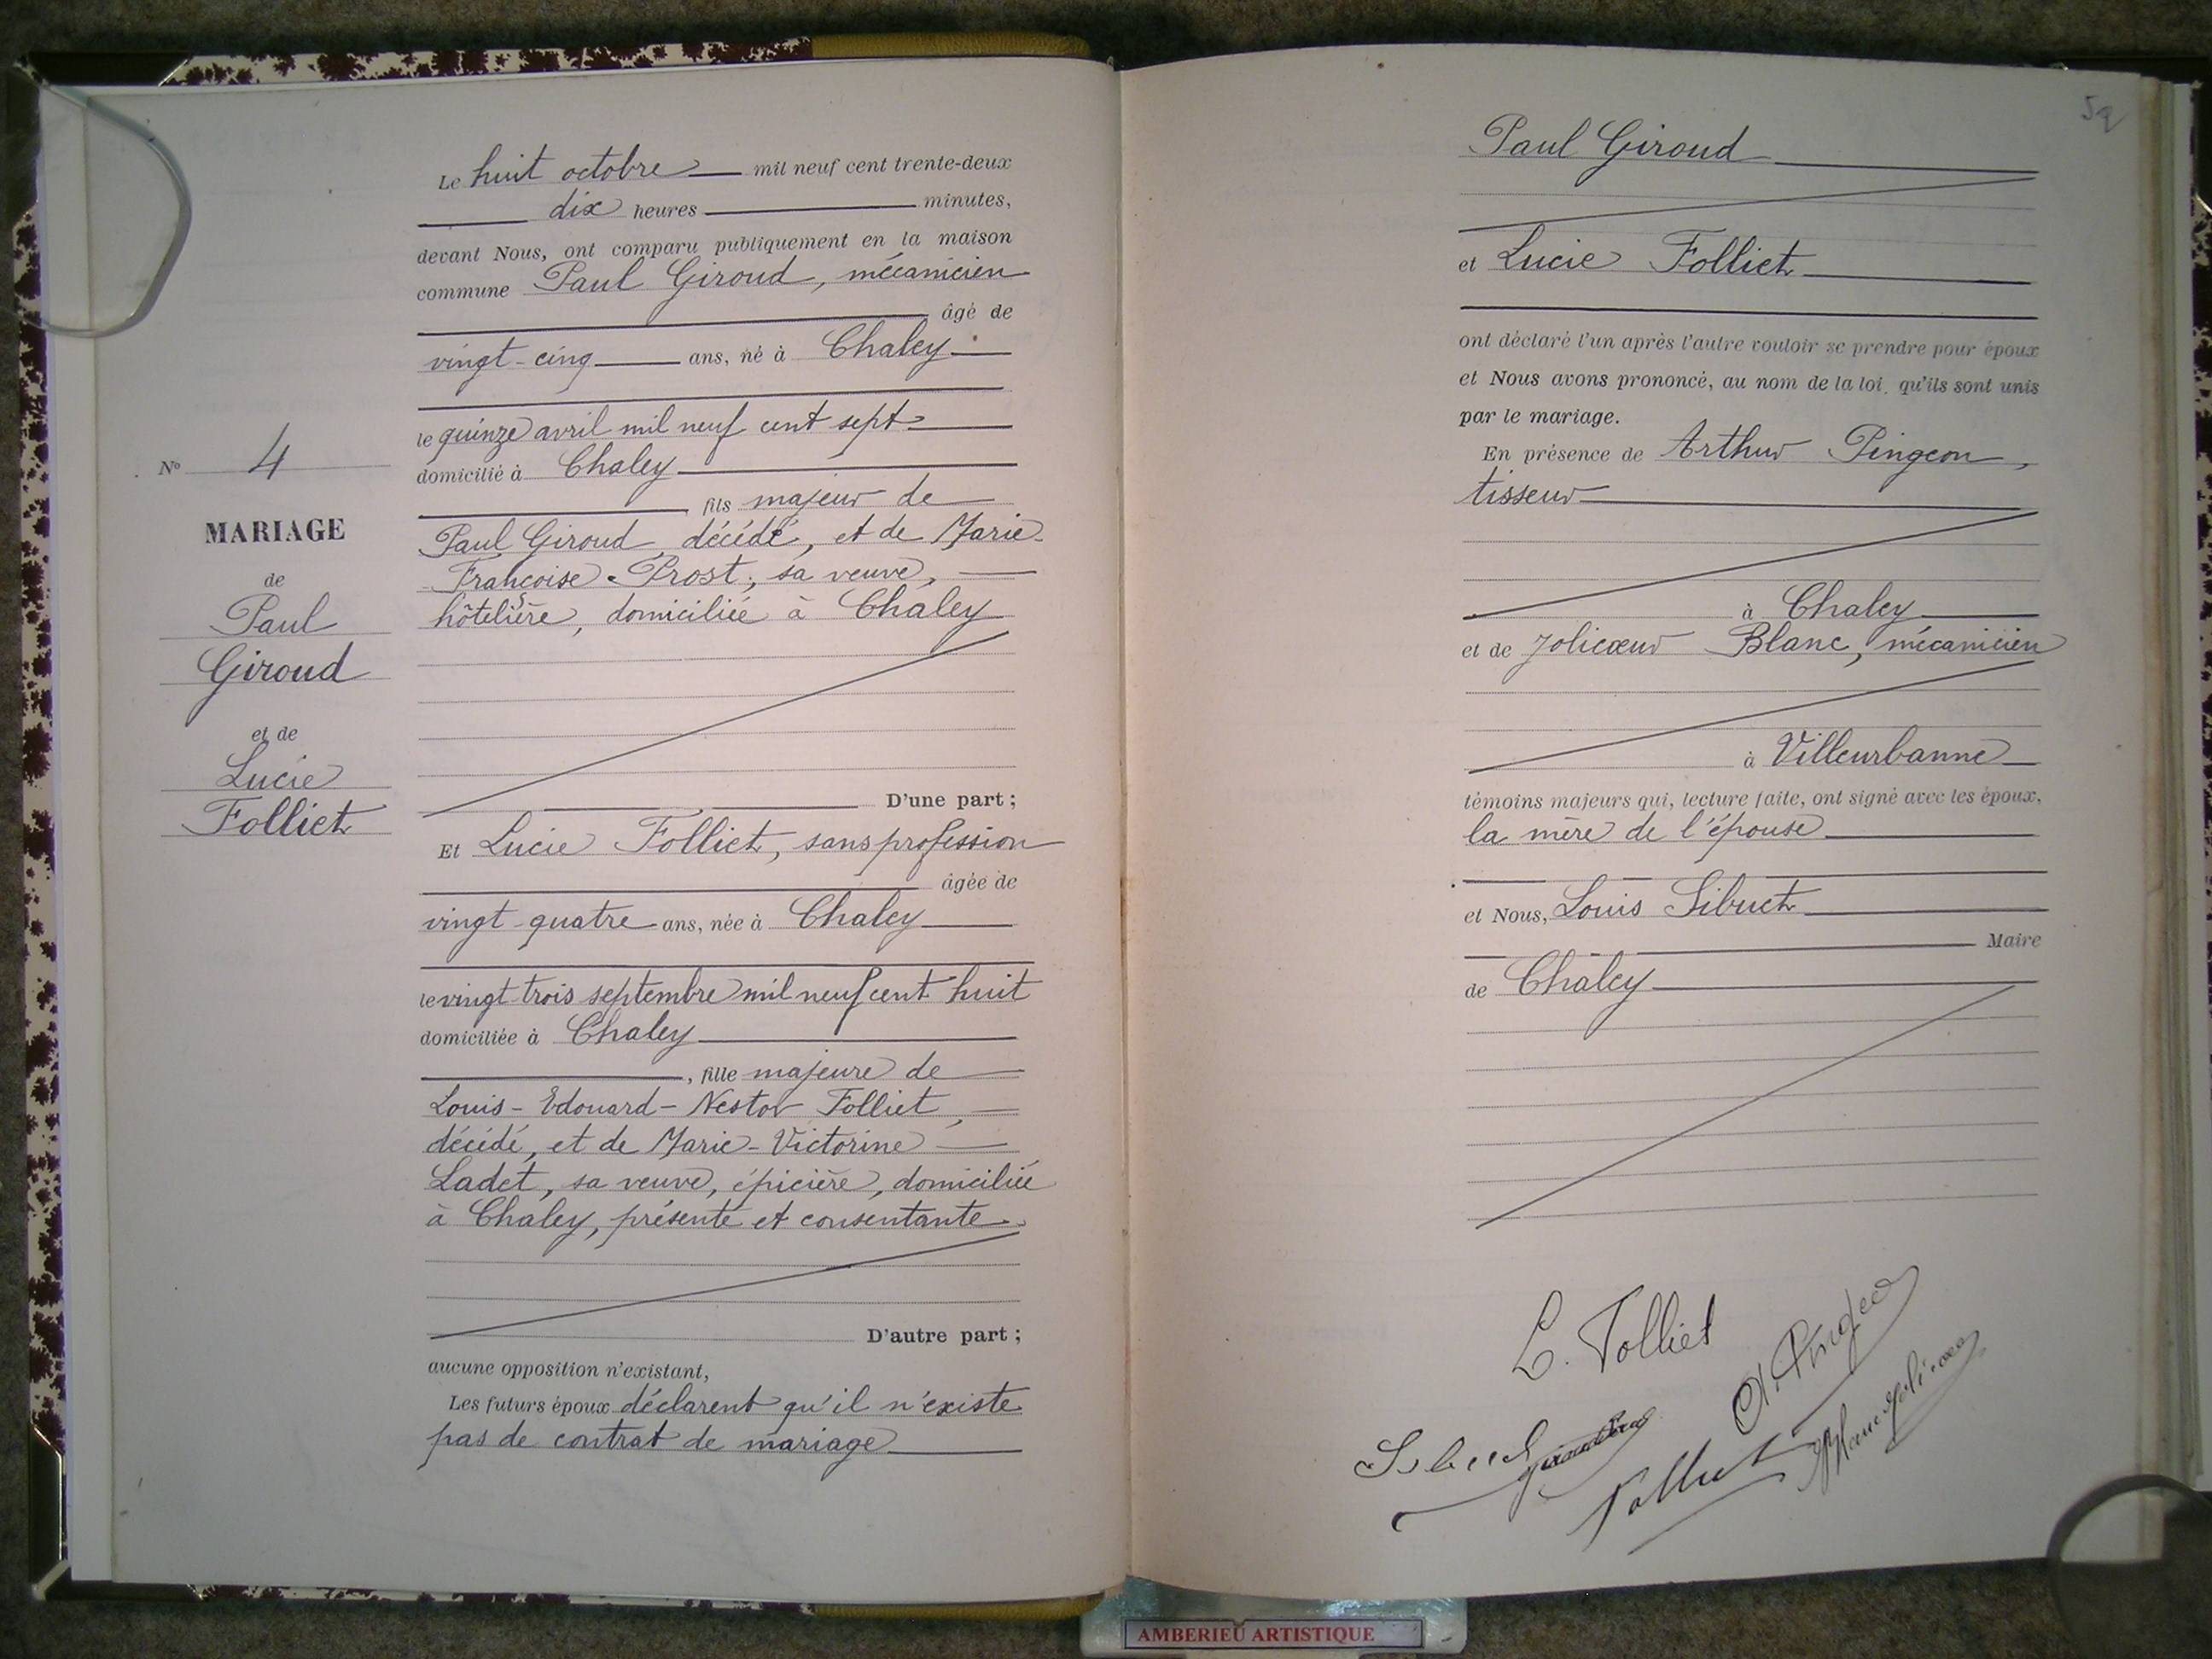 N° 4
MARIAGE
de
Paul
Giroud
et de
Lucie
Folliet
Le huit octobre mil neuf cent trente-deux
dix heures minutes,
devant Nous, ont comparu publiquement en la maison
commune Paul Giroud, mécanicien
âgé de
vingt-cinq ans, né à Chaley
le quinze avril mil neuf cent sept
domicilié à Chaley
, fils majeur de
Paul Giroud décédé, et de Marie-
Françoise Prost, sa veuve,
hôtelière, domiciliée à Chaley
D'une part ;
Et Lucie Folliet, sans profession
âgée de
vingt-quatre ans, née à Chaley
le vingt-trois septembre mil neuf cent huit
domiciliée à Chaley
, fille majeure de
Louis-Edouard-Nestor Folliet,
décédé, et de Marie-Victorine
Ladet, sa veuve, épicière, domiciliée
à Chaley, présente et consentante.
D'autre part ;
aucune opposition n'existant,
Les futurs époux déclarent qu'il n'existe
pas de contrat de mariage
59
Paul Giroud
et Lucie Folliet
ont déclaré l'un après l'autre vouloir se prendre pour époux
et Nous avons prononcé, au nom de la loi, qu'ils sont unis
par le mariage.
En présence de Arthur Pingeon,
tisseur
à Chaley
et de Jolicœur Blanc, mécanicien
à Villeurbanne
témoins majeurs qui, lecture faite, ont signé avec les époux,
la mère de l'épouse
et Nous, Louis Sibuet
Maire
de Chaley
L. Folliet
A. Pingeon
Sibuet
Folliet
Blanc Jolicœur
AMBERIEU ARTISTIQUE